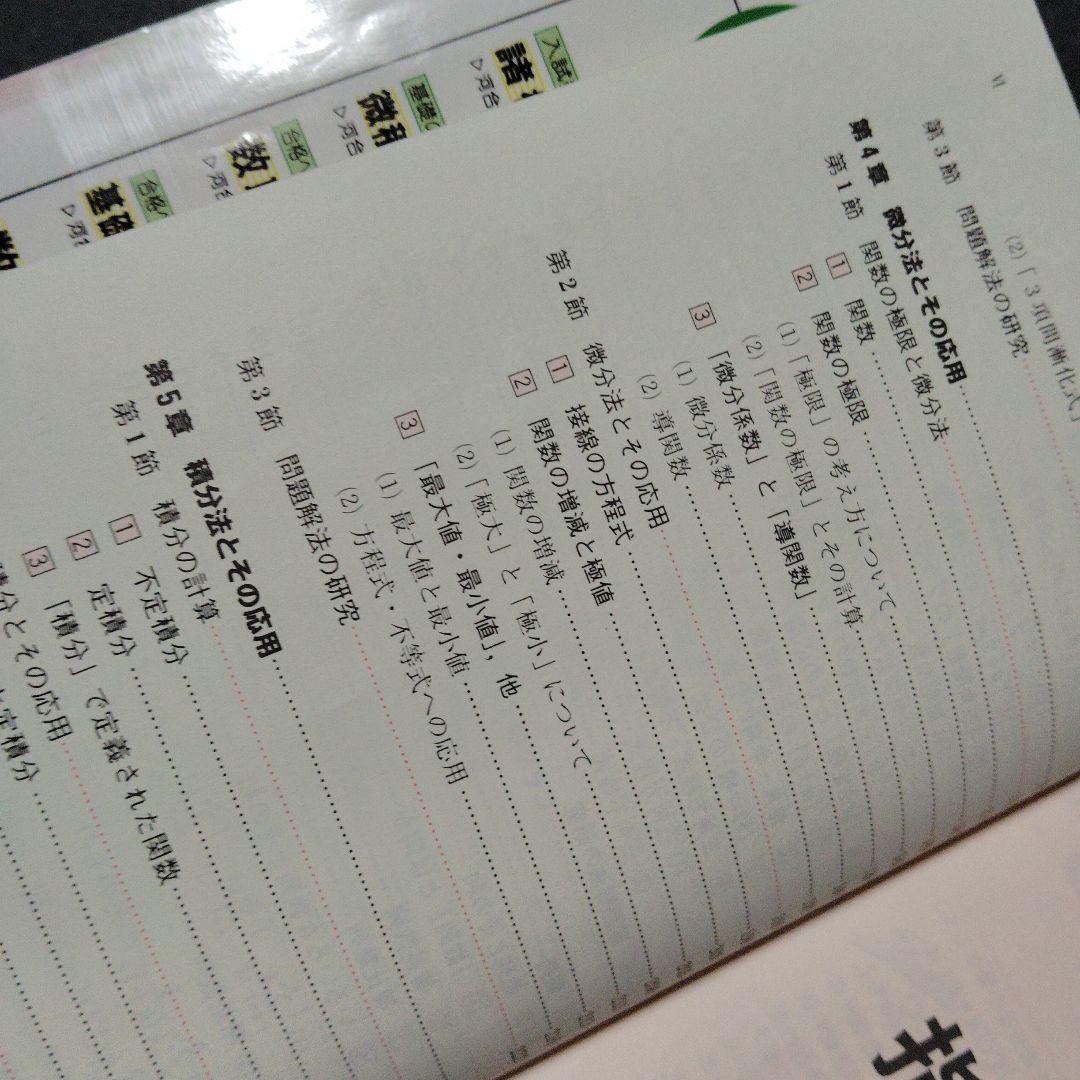 VI
(2)「3項間漸化式」
第3節 問題解法の研究
第4章 微分法とその応用
第1節 関数の極限と微分法
1 関数
2 関数の極限
(1)「極限」の考え方について
(2)「関数の極限」とその計算
3 「微分係数」と「導関数」
(1) 微分係数
(2) 導関数
第2節 微分法とその応用
1 接線の方程式
2 関数の増減と極値
(1) 関数の増減
(2)「極大」と「極小」について
3 「最大値・最小値」,他
(1) 最大値と最小値
(2) 方程式・不等式への応用
第3節 問題解法の研究
第5章 積分法とその応用
第1節 積分の計算
1 不定積分
2 定積分
3 「積分」で定義された関数
積分とその応用
定積分
入試
諸
▷河合
基礎
微積
▷河合
合格
数
▷河合
合格
基礎
▷河合
数